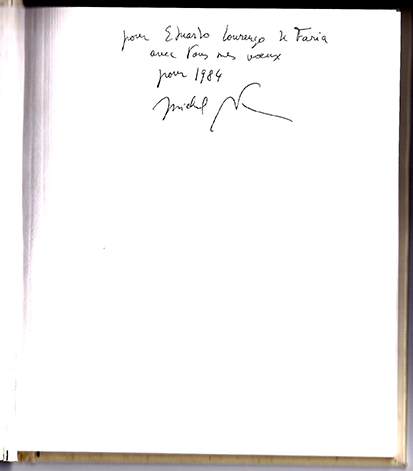 pour Eduardo Lourenço de Faria
avec tous mes voeux
pour 1984
Michel